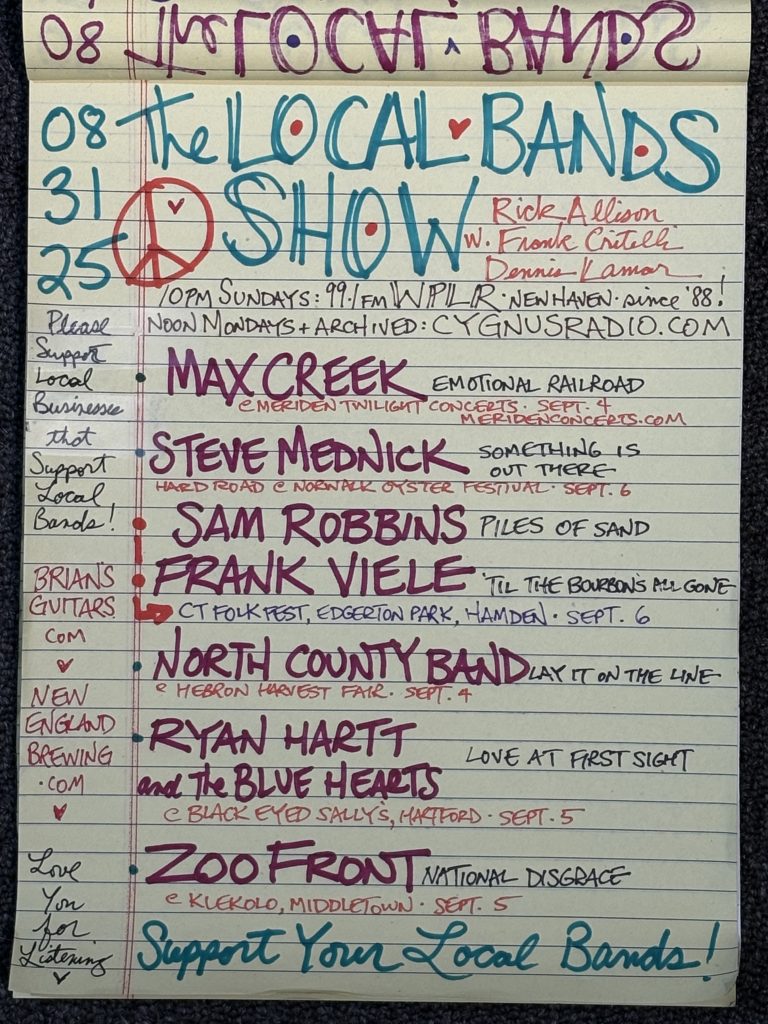 08 The LOCAL BANDS
08 The LOCAL BANDS
31 SHOW Rick Allison
w. Frank Critelli
25 Dennis Lamar
10PM SUNDAYS: 99.1FM WPLR · NEW HAVEN · since '88!
NOON MONDAYS + ARCHIVED: CYGNUSRADIO.COM
Please
Support
Local
Businesses
that
Support
Local
Bands!
BRIAN'S
GUITARS
COM
NEW
ENGLAND
BREWING
.COM
Love
You
for
Listening
• MAX CREEK EMOTIONAL RAILROAD
@ MERIDEN TWILIGHT CONCERTS · SEPT. 4
MERIDENCONCERTS.COM
• STEVE MEDNICK SOMETHING IS
OUT THERE
HARD ROAD @ NORWALK OYSTER FESTIVAL · SEPT. 6
• SAM ROBBINS PILES OF SAND
• FRANK VIELE 'TIL THE BOURBON'S ALL GONE
CT FOLK FEST, EDGERTON PARK, HAMDEN · SEPT. 6
• NORTH COUNTY BAND LAY IT ON THE LINE
@ HEBRON HARVEST FAIR · SEPT. 4
• RYAN HARTT
and The BLUE HEARTS LOVE AT FIRST SIGHT
@ BLACK EYED SALLY'S, HARTFORD · SEPT. 5
• ZOO FRONT NATIONAL DISGRACE
@ KLEKOLO, MIDDLETOWN · SEPT. 5
Support Your Local Bands!